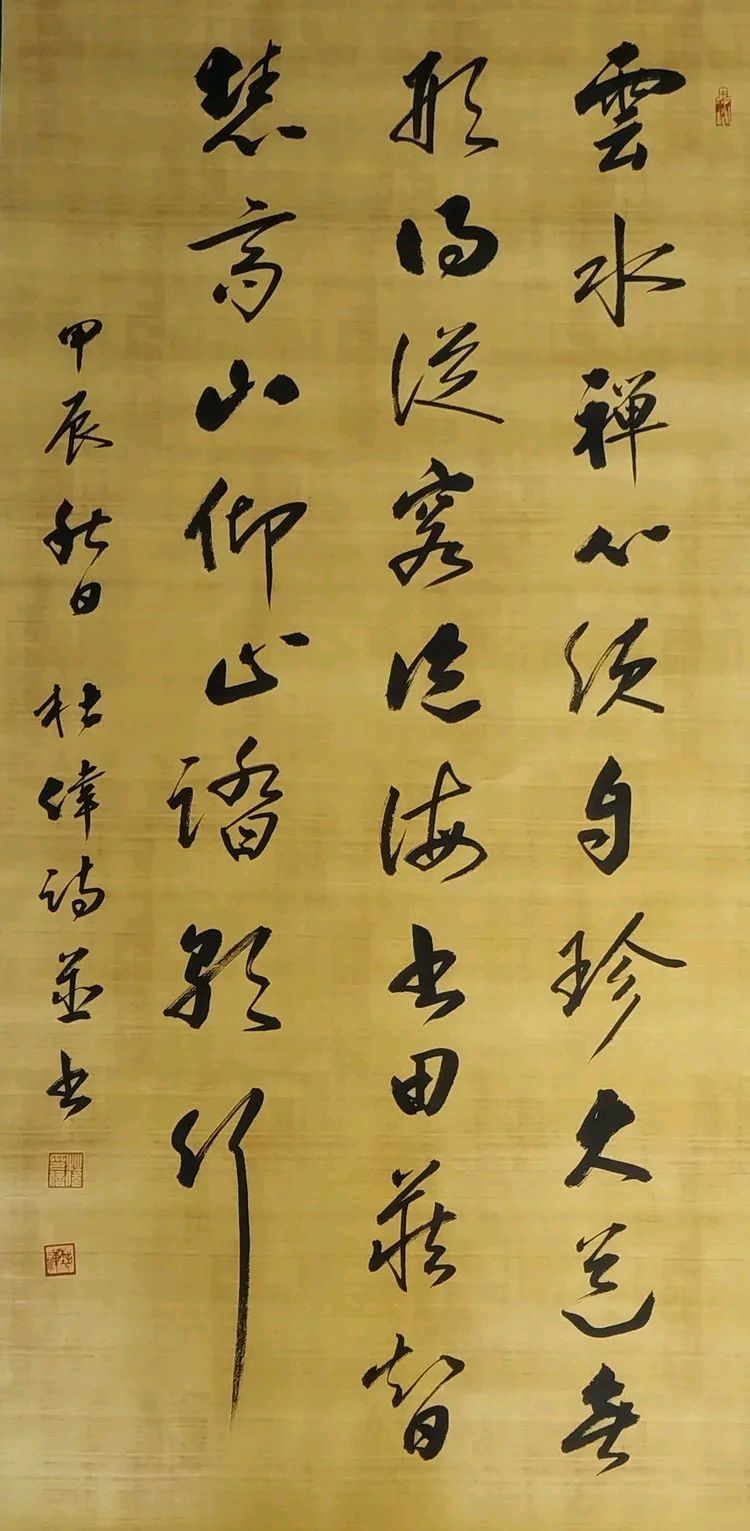 雲水禪心須自珍大道無
形得從容海書田藏智
慧高山仰止踏歌行
甲辰秋日 杜偉詩並書